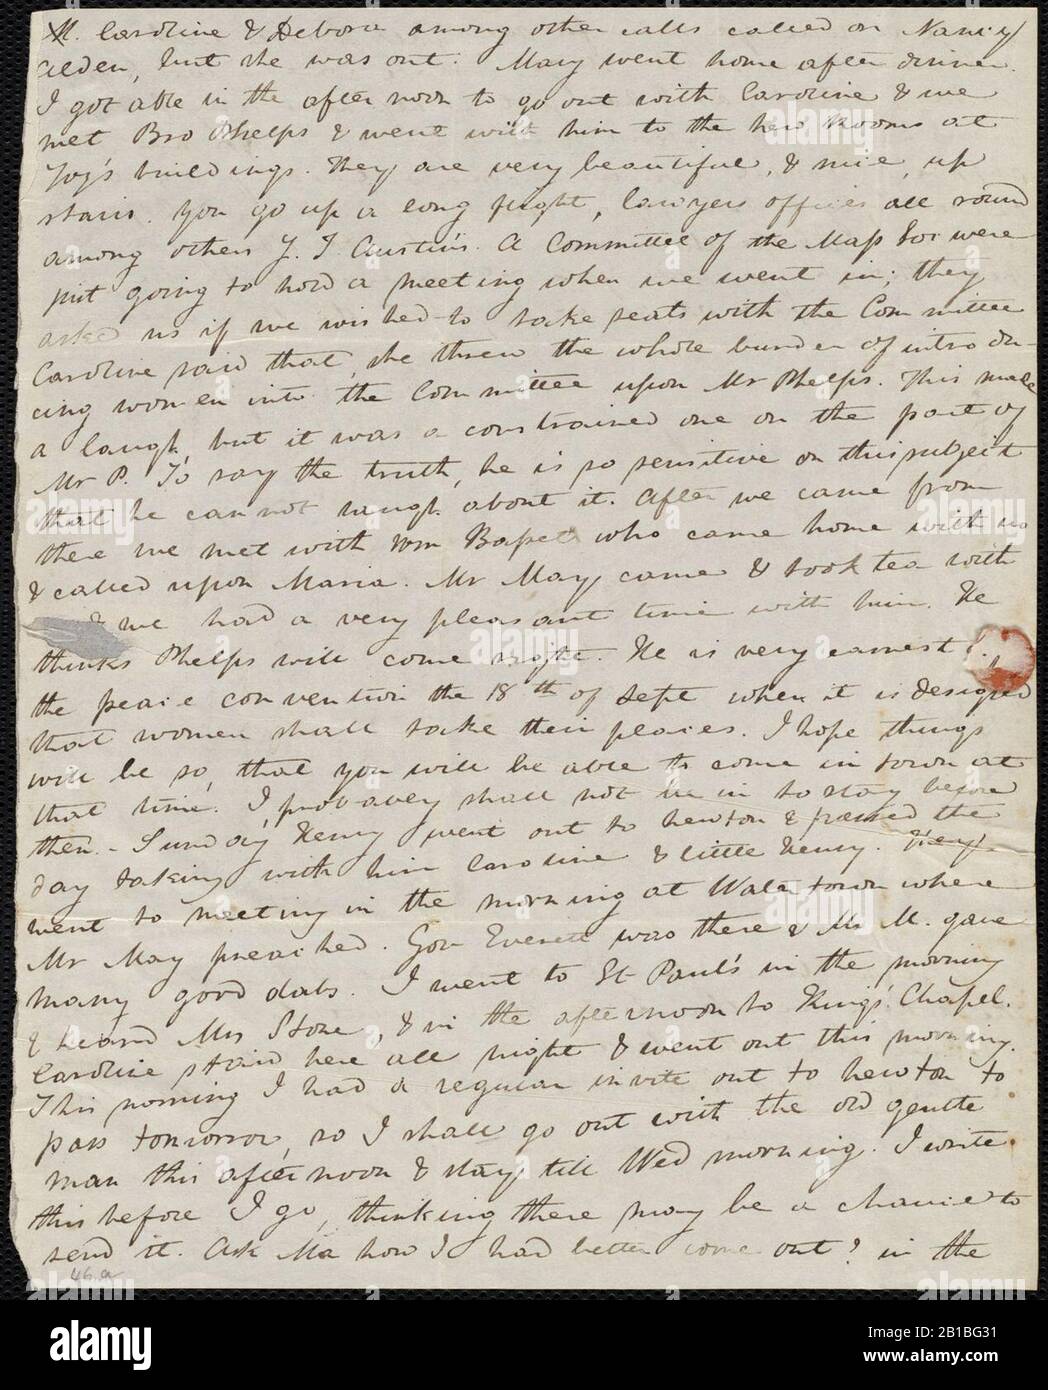 M. Caroline & Debora among other calls called on Nancy
Alden, but she was out. Mary went home after dinner.
I got able in the afternoon to go out with Caroline & we
met Bro Phelps & went with him to the new Rooms at
Joy's buildings. They are very beautiful, & nice, up
stairs. You go up a long flight, lawyers offices all round
among others J. T. Austin's. A Committee of the Mass Soc were
just going to hold a meeting when we went in; they
asked us if we wished to take seats with the Committee
Caroline said that she threw the whole burden of introdu-
cing women into the Committee upon Mr Phelps. This made
a laugh, but it was a constrained one on the part of
Mr P. To say the truth, he is so sensitive on this subject
that he cannot laugh about it. After we came from
there we met with Wm Basset who came home with us
& called upon Maria. Mr May came & took tea with
& we had a very pleasant time with him. He
thinks Phelps will come right. He is very earnest
the peace convention the 18th of Sept when it is designed
that women shall take their places. I hope things
will be so, that you will be able to come in town at
that time. I probably shall not be in to stay before
then. - Sunday Henry went out to Newton & passed the
day taking with him Caroline & little Henry. They
went to meeting in the morning at Watertown where
Mr May preached. Gov Everett was there & Mr M. gave
many good dabs. I went to St Paul's in the morning
& heard Mr Stone, & in the afternoon to King's Chapel.
Caroline staid here all night & went out this morning.
This morning I had a regular invite out to Newton to
pass tomorrow, so I shall go out with the old gentle
man this afternoon & stay till Wed morning. I write
this before I go, thinking there may be a chance to
send it. Ask Ma how I had better come out? in the
46.a
alamy
Image ID: 2B1BG31
www.alamy.com